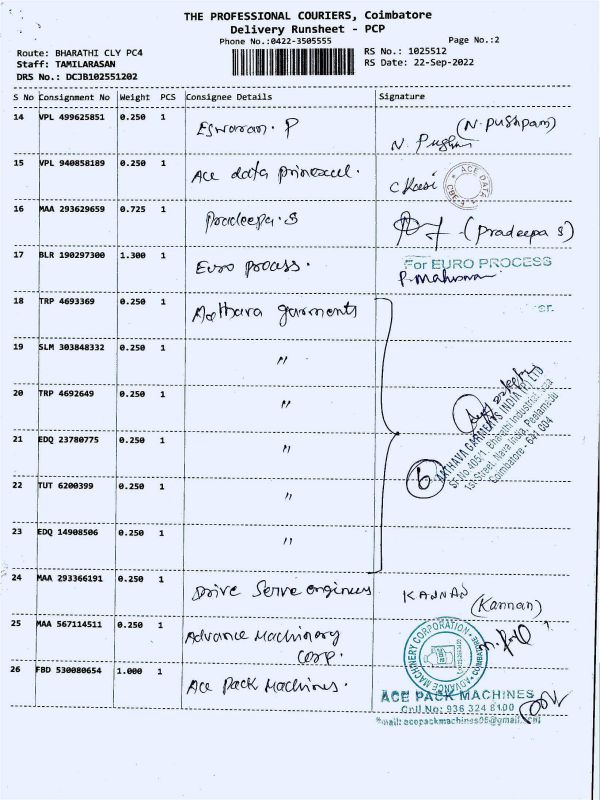 THE PROFESSIONAL COURIERS, Coimbatore
Delivery Runsheet - PCP
Phone No.:0422-3505555
Page No.:2
Route: BHARATHI CLY PC4
RS No.: 1025512
Staff: TAMILARASAN
RS Date: 22-Sep-2022
DRS No.: DCJB102551202
S No Consignment No Weight PCS Consignee Details Signature
14 VPL 499625851 0.250 1 Eswaran. P N. Pushpam (N. Pushpam)
15 VPL 940858189 0.250 1 Ace data ACE DATA CBE
16 MAA 293629659 0.725 1 Pradeepa. S (Pradeepa S)
17 BLR 190297300 1.300 1 Euro process. For EURO PROCESS
18 TRP 4693369 0.250 1 Aathava garments
19 SLM 303848332 0.250 1 "
20 TRP 4692649 0.250 1 "
21 EDQ 23780775 0.250 1 "
22 TUT 6200399 0.250 1 "
23 EDQ 14908506 0.250 1 "
6
AATHAVA GARMENTS INDIA (P) LTD
SF No. 405/1, Bharathi Industrial
1st Street, Nava India, Peelamedu
Coimbatore - 641 004
24 MAA 293366191 0.250 1 Drive Serve engineers KANNAN
(Kannan)
25 MAA 567114511 0.250 1 Advance Machinery
Corp.
ADVANCE MACHINERY CORPORATION COIMBATORE
26 FBD 530080654 1.000 1 Ace Pack Machines.
ACE PACK MACHINES
Cell No: 936 324 8100